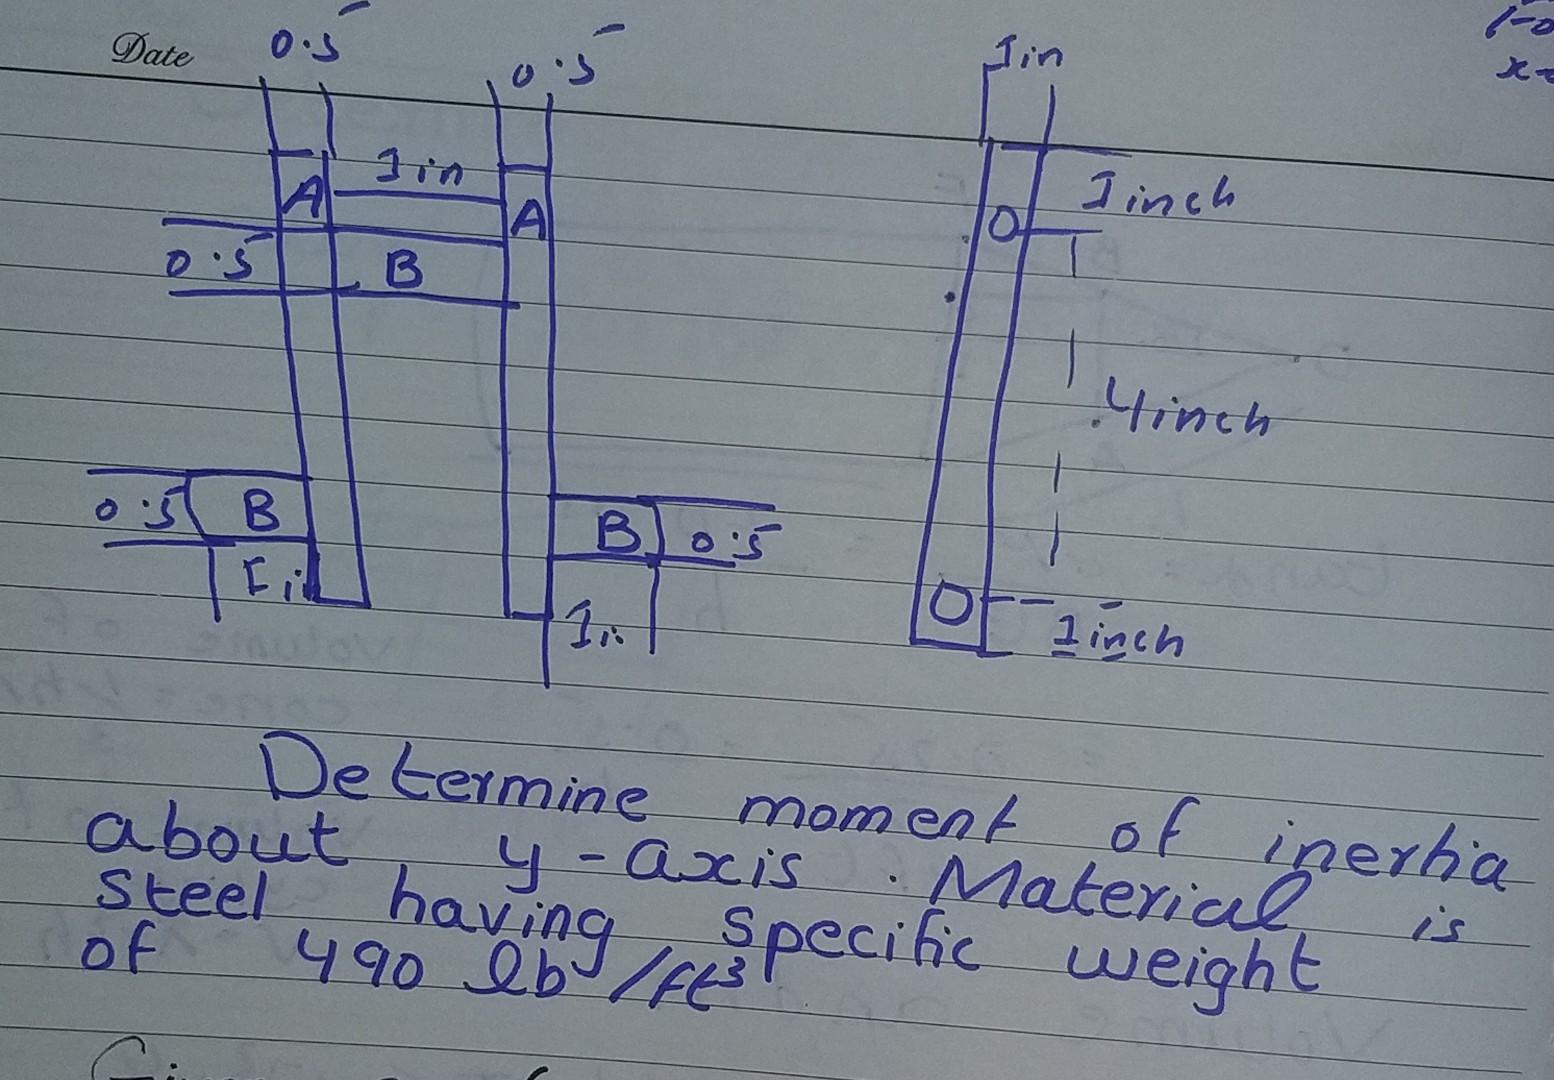 Date
0.5
0.5
1in
1in
A
A
1inch
0.5
B
4inch
0.5
B
B
0.5
1in
1inch
Determine moment of inertia
about y-axis. Material is
Steel having specific weight
of 490 lb/ft³